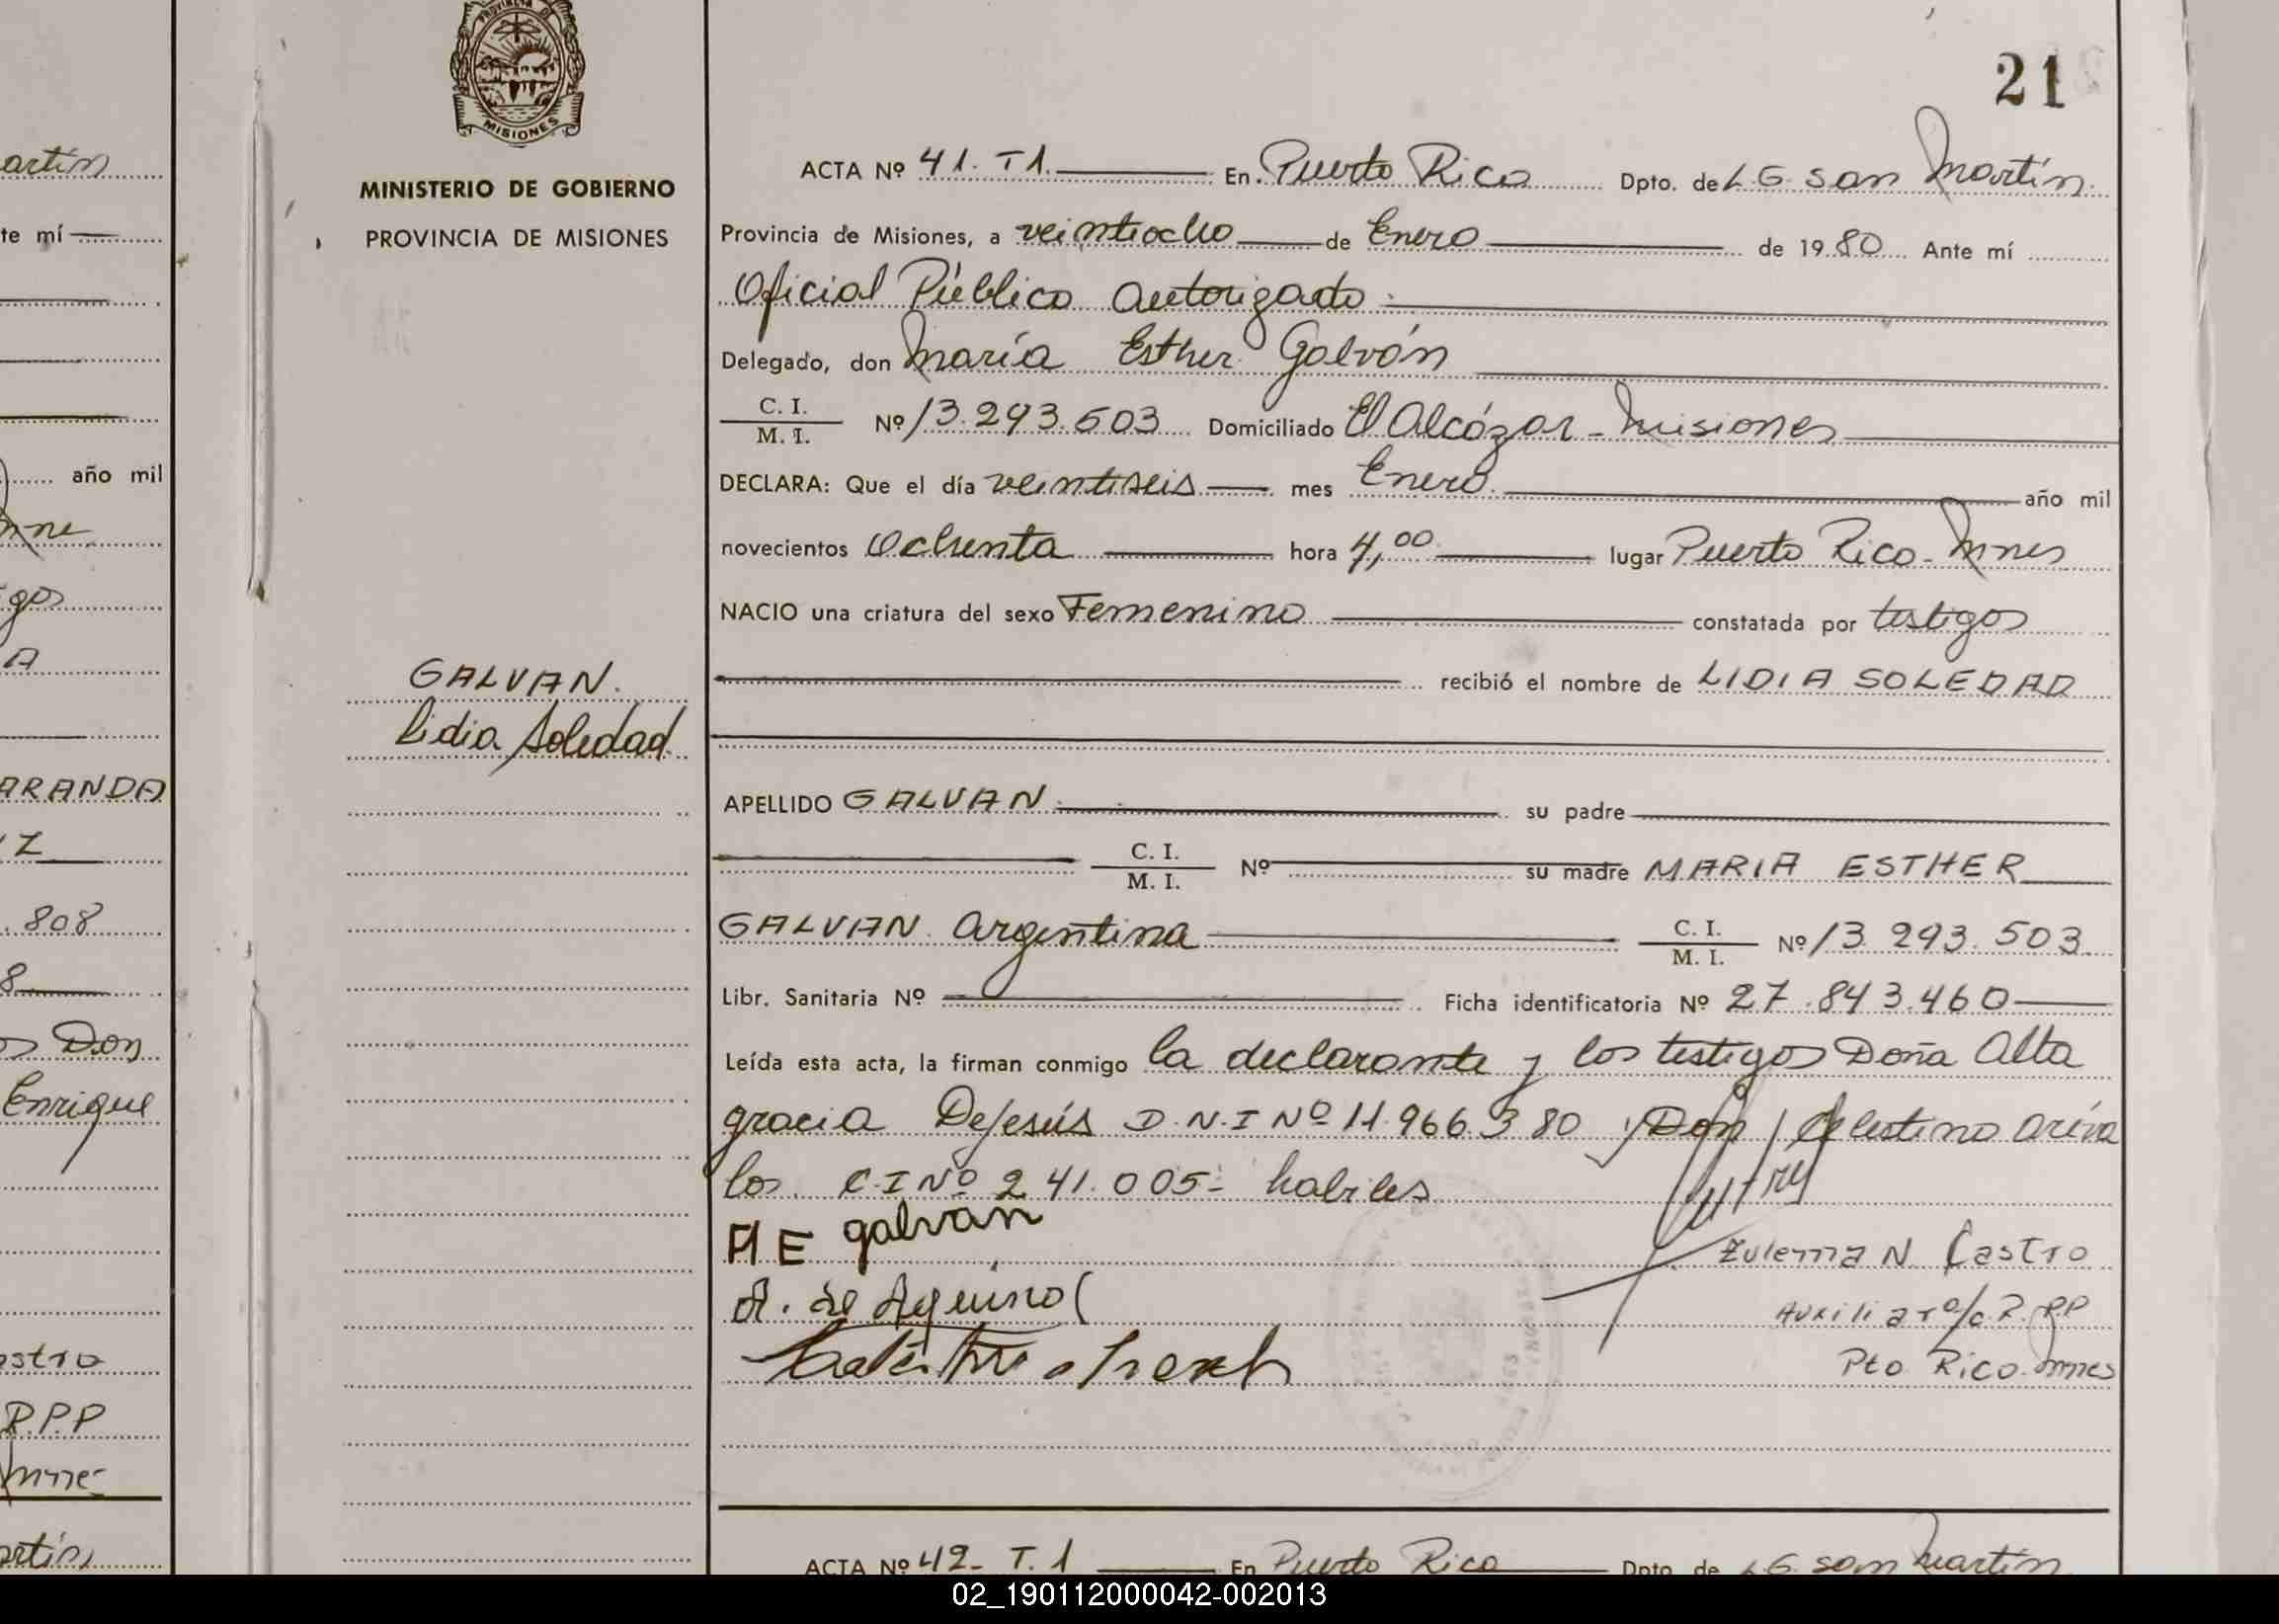 PROVINCIA DE
MISIONES
MINISTERIO DE GOBIERNO
PROVINCIA DE MISIONES
GALVAN.
Lidia Soledad
21
ACTA Nº 41. T1. En Puerto Rico Dpto. de L G San Martín
Provincia de Misiones, a veintiocho de Enero de 1980 Ante mí
Oficial Público Autorizado
Delegado, don María Esther Galván
C. I.
M. I. Nº 13.293.503 Domiciliado El Alcázar - Misiones
DECLARA: Que el día veintiseis mes Enero año mil
novecientos Ochenta hora 4,00 lugar Puerto Rico - Mnes
NACIO una criatura del sexo Femenino constatada por testigos
recibió el nombre de LIDIA SOLEDAD
APELLIDO GALVAN su padre
C. I.
M. I. Nº su madre MARIA ESTHER
GALVAN Argentina C. I.
M. I. Nº 13 293. 503
Libr. Sanitaria Nº Ficha identificatoria Nº 27.843.460
Leída esta acta, la firman conmigo la declarante y los testigos Doña Alta
gracia DeJesús D.N.I Nº 11.966.380 y Don Celestino Aréva
los C.I Nº 241.005- habiles
M E galvan
A. de Aquino
Zulema N Castro
Auxiliar a/c R.P.P
Pto Rico Mnes
ACTA Nº 42- T. 1 En Puerto Rico Dpto de L G San Martín
artín
te mí
año mil
nne
gos
A
ARANDA
Z
.808
8
os Don
Enrique
stro
R.P.P
mnes
artín
02_190112000042-002013